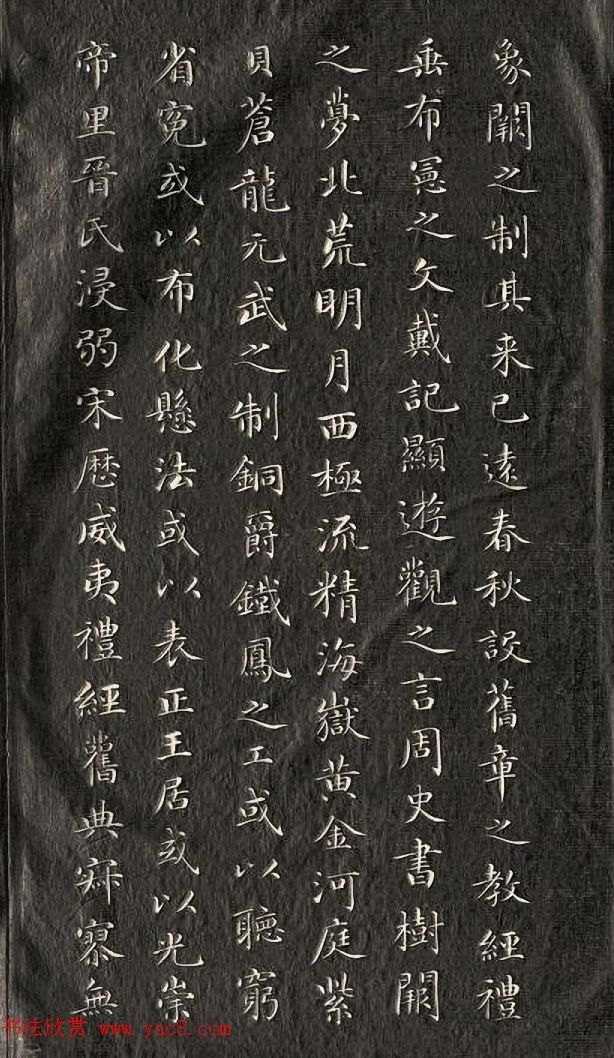 象闕之制其来已遠春秋設舊章之教經禮
垂布憲之文戴記顯遊觀之言周史書樹闕
之夢北荒明月西極流精海嶽黄金河庭紫
貝蒼龍元武之制銅爵鐵鳳之工或以聽窮
省冤或以布化懸法或以表正王居或以光崇
帝里晉氏浸弱宋歷威夷禮經舊典寂寥無
书法欣赏 www.yac8.com